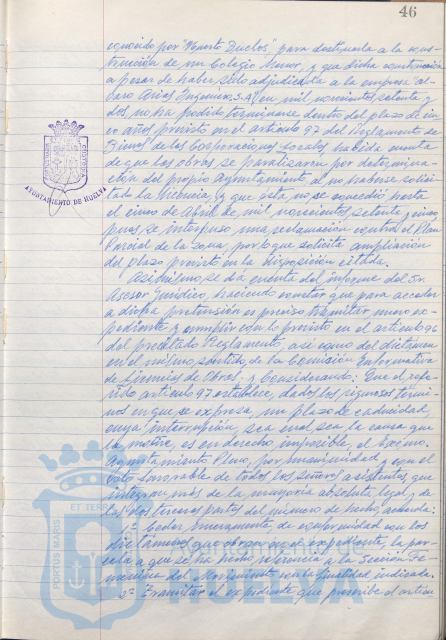 46
conocido por "Huerto Duclos" para destinarla a la cons-
trucción de un Colegio Menor, y que dicha construcción
a pesar de haber sido adjudicada a la empresa
Arias Ingenieros, S.A. en mil novecientos setenta y
dos no ha podido terminarse dentro del plazo de cin-
co años previsto en el artículo 97 del Reglamento de
Bienes de las Corporaciones Locales habida cuenta
de que las obras se paralizaron por determina-
ción del propio Ayuntamiento al no haberse solici-
tado la licencia, y que ésta, no se concedió hasta
el cinco de Abril de mil novecientos setenta y cinco
pues se interpuso una reclamación contra el Plan
Parcial de la Zona, por lo que solicita ampliación
del plazo previsto en la disposición citada.
Asimismo se dá cuenta del informe del Sr.
Asesor Jurídico, haciendo constar que para acceder
a dicha pretensión es preciso tramitar nuevo ex-
pediente y cumplir con lo previsto en el artículo 96
del precitado Reglamento, así como del dictamen
en el mismo sentido, de la Comisión Informativa
de Licencias de Obras, y Considerando: Que el refe-
rido artículo 97 establece, dados los rigurosos térmi-
nos en que se expresa, un plazo de caducidad,
cuya interrupción, sea cual sea la causa que
la motive, es en derecho imposible, el Excmo.
Ayuntamiento Pleno, por unanimidad y con el
voto favorable de todos los señores asistentes que
integran más de la mayoría absoluta legal y de
las dos terceras partes del número de hecho, acuerda:
1º Ceder nuevamente de conformidad con los
dictámenes que obran en el expediente la par-
cela a que se ha hecho referencia a la Sección Fe-
menina del Movimiento con la finalidad indicada.
2º Tramitar el expediente que prescribe el artícu-
AYUNTAMIENTO DE HUELVA
PORTUS MARIS
ET TERRAE
Ayuntamiento de
HUELVA